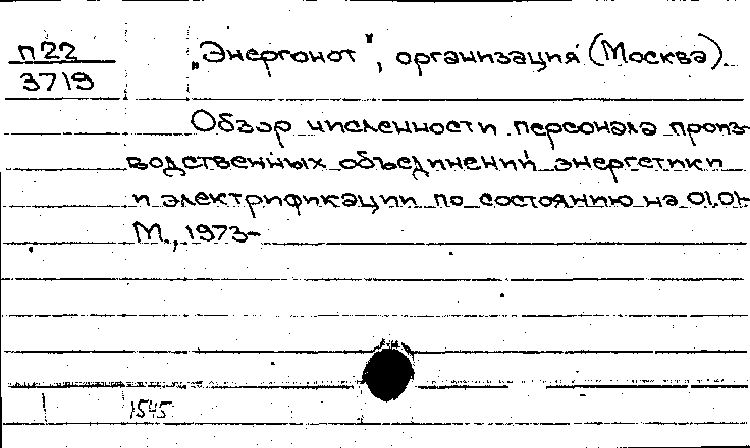 П22
3719
„Энергонот", организация (Москва).
Обзор численности персонала произ-
водственных объединений энергетики
и электрификации по состоянию на 01.01-
М., 1973-
1545